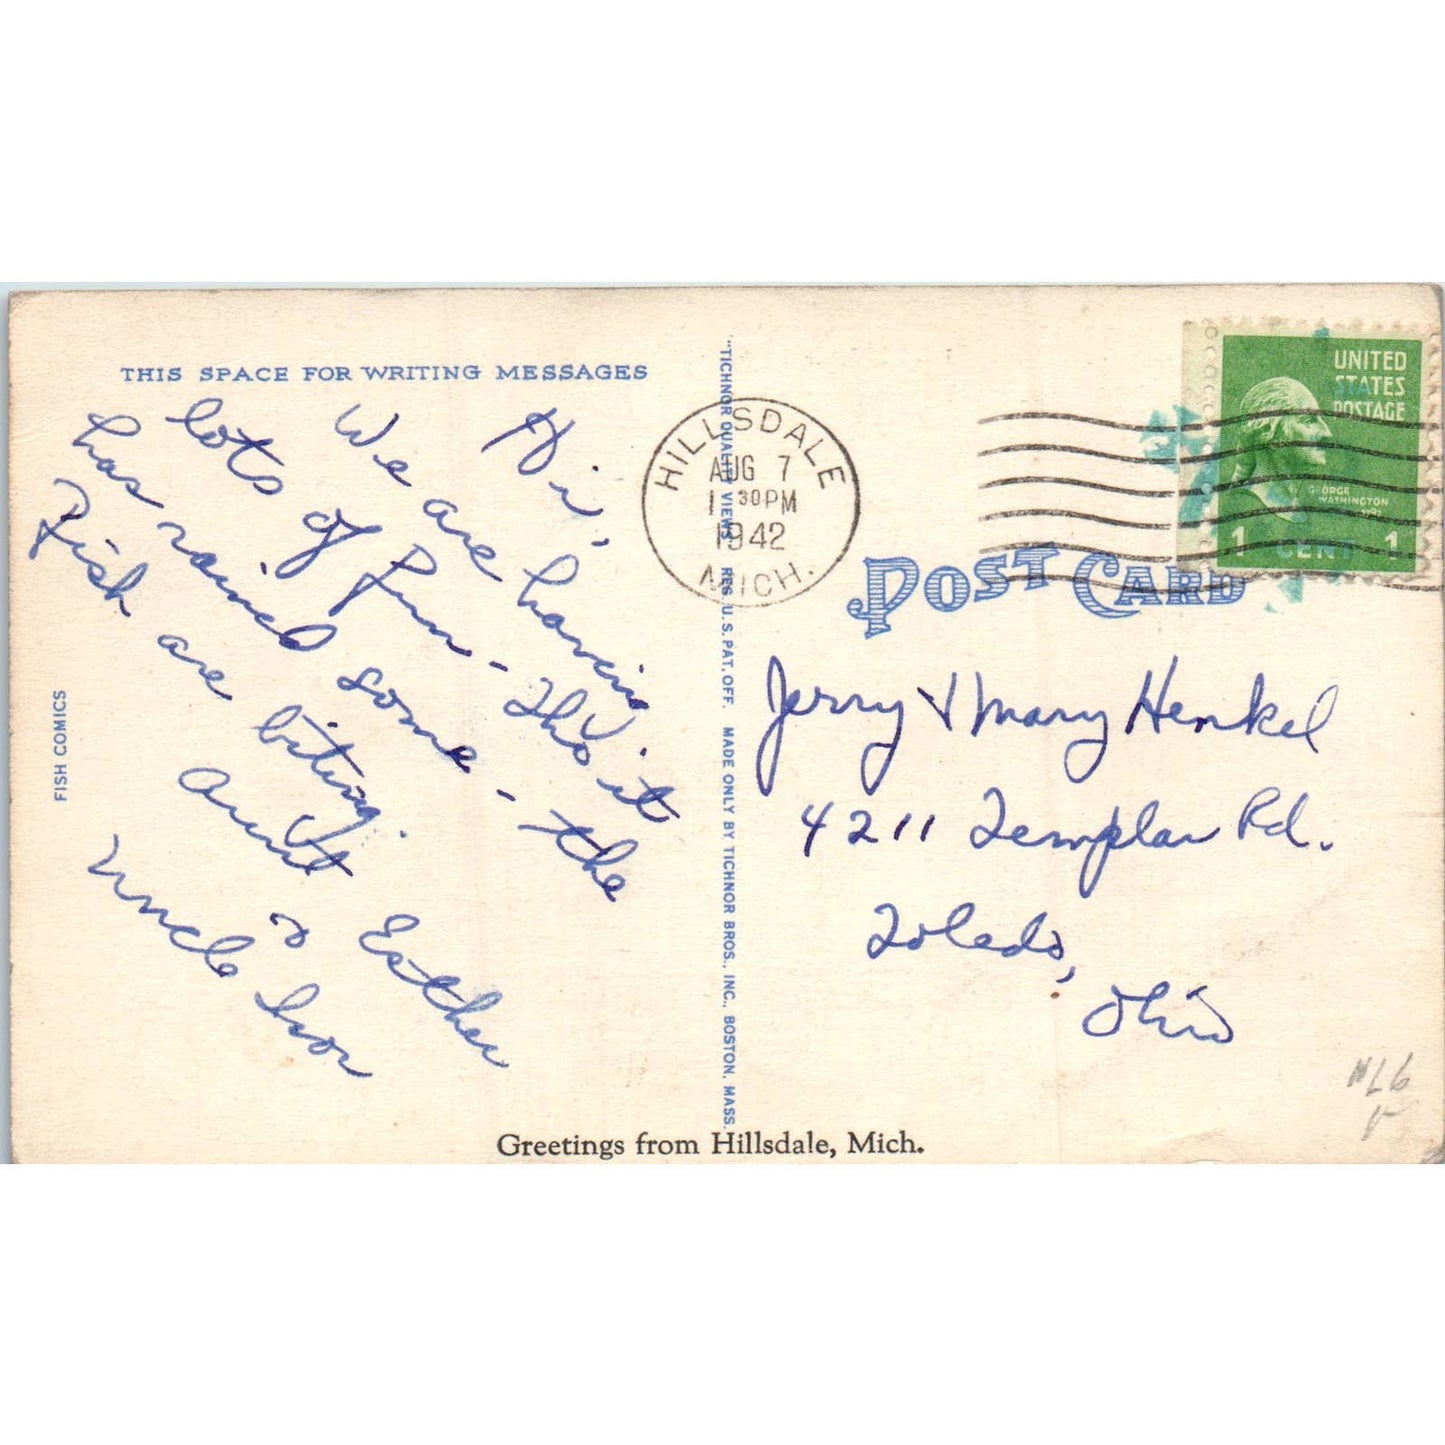 THIS SPACE FOR WRITING MESSAGES
Hi,
We are having
lots of fun - Tho it
has rained some - the
Fish are biting.
Aunt Esther
&
Uncle Ivor
FISH COMICS
"TICHNOR QUALITY VIEWS," REG. U. S. PAT. OFF. MADE ONLY BY TICHNOR BROS., INC., BOSTON, MASS.
HILLSDALE
AUG 7
1 30 PM
1942
MICH.
UNITED
STATES
POSTAGE
GEORGE
WASHINGTON
1 CENT 1
POST CARD
Jerry & Mary Henkel
4211 Templar Rd.
Toledo,
Ohio
Greetings from Hillsdale, Mich.